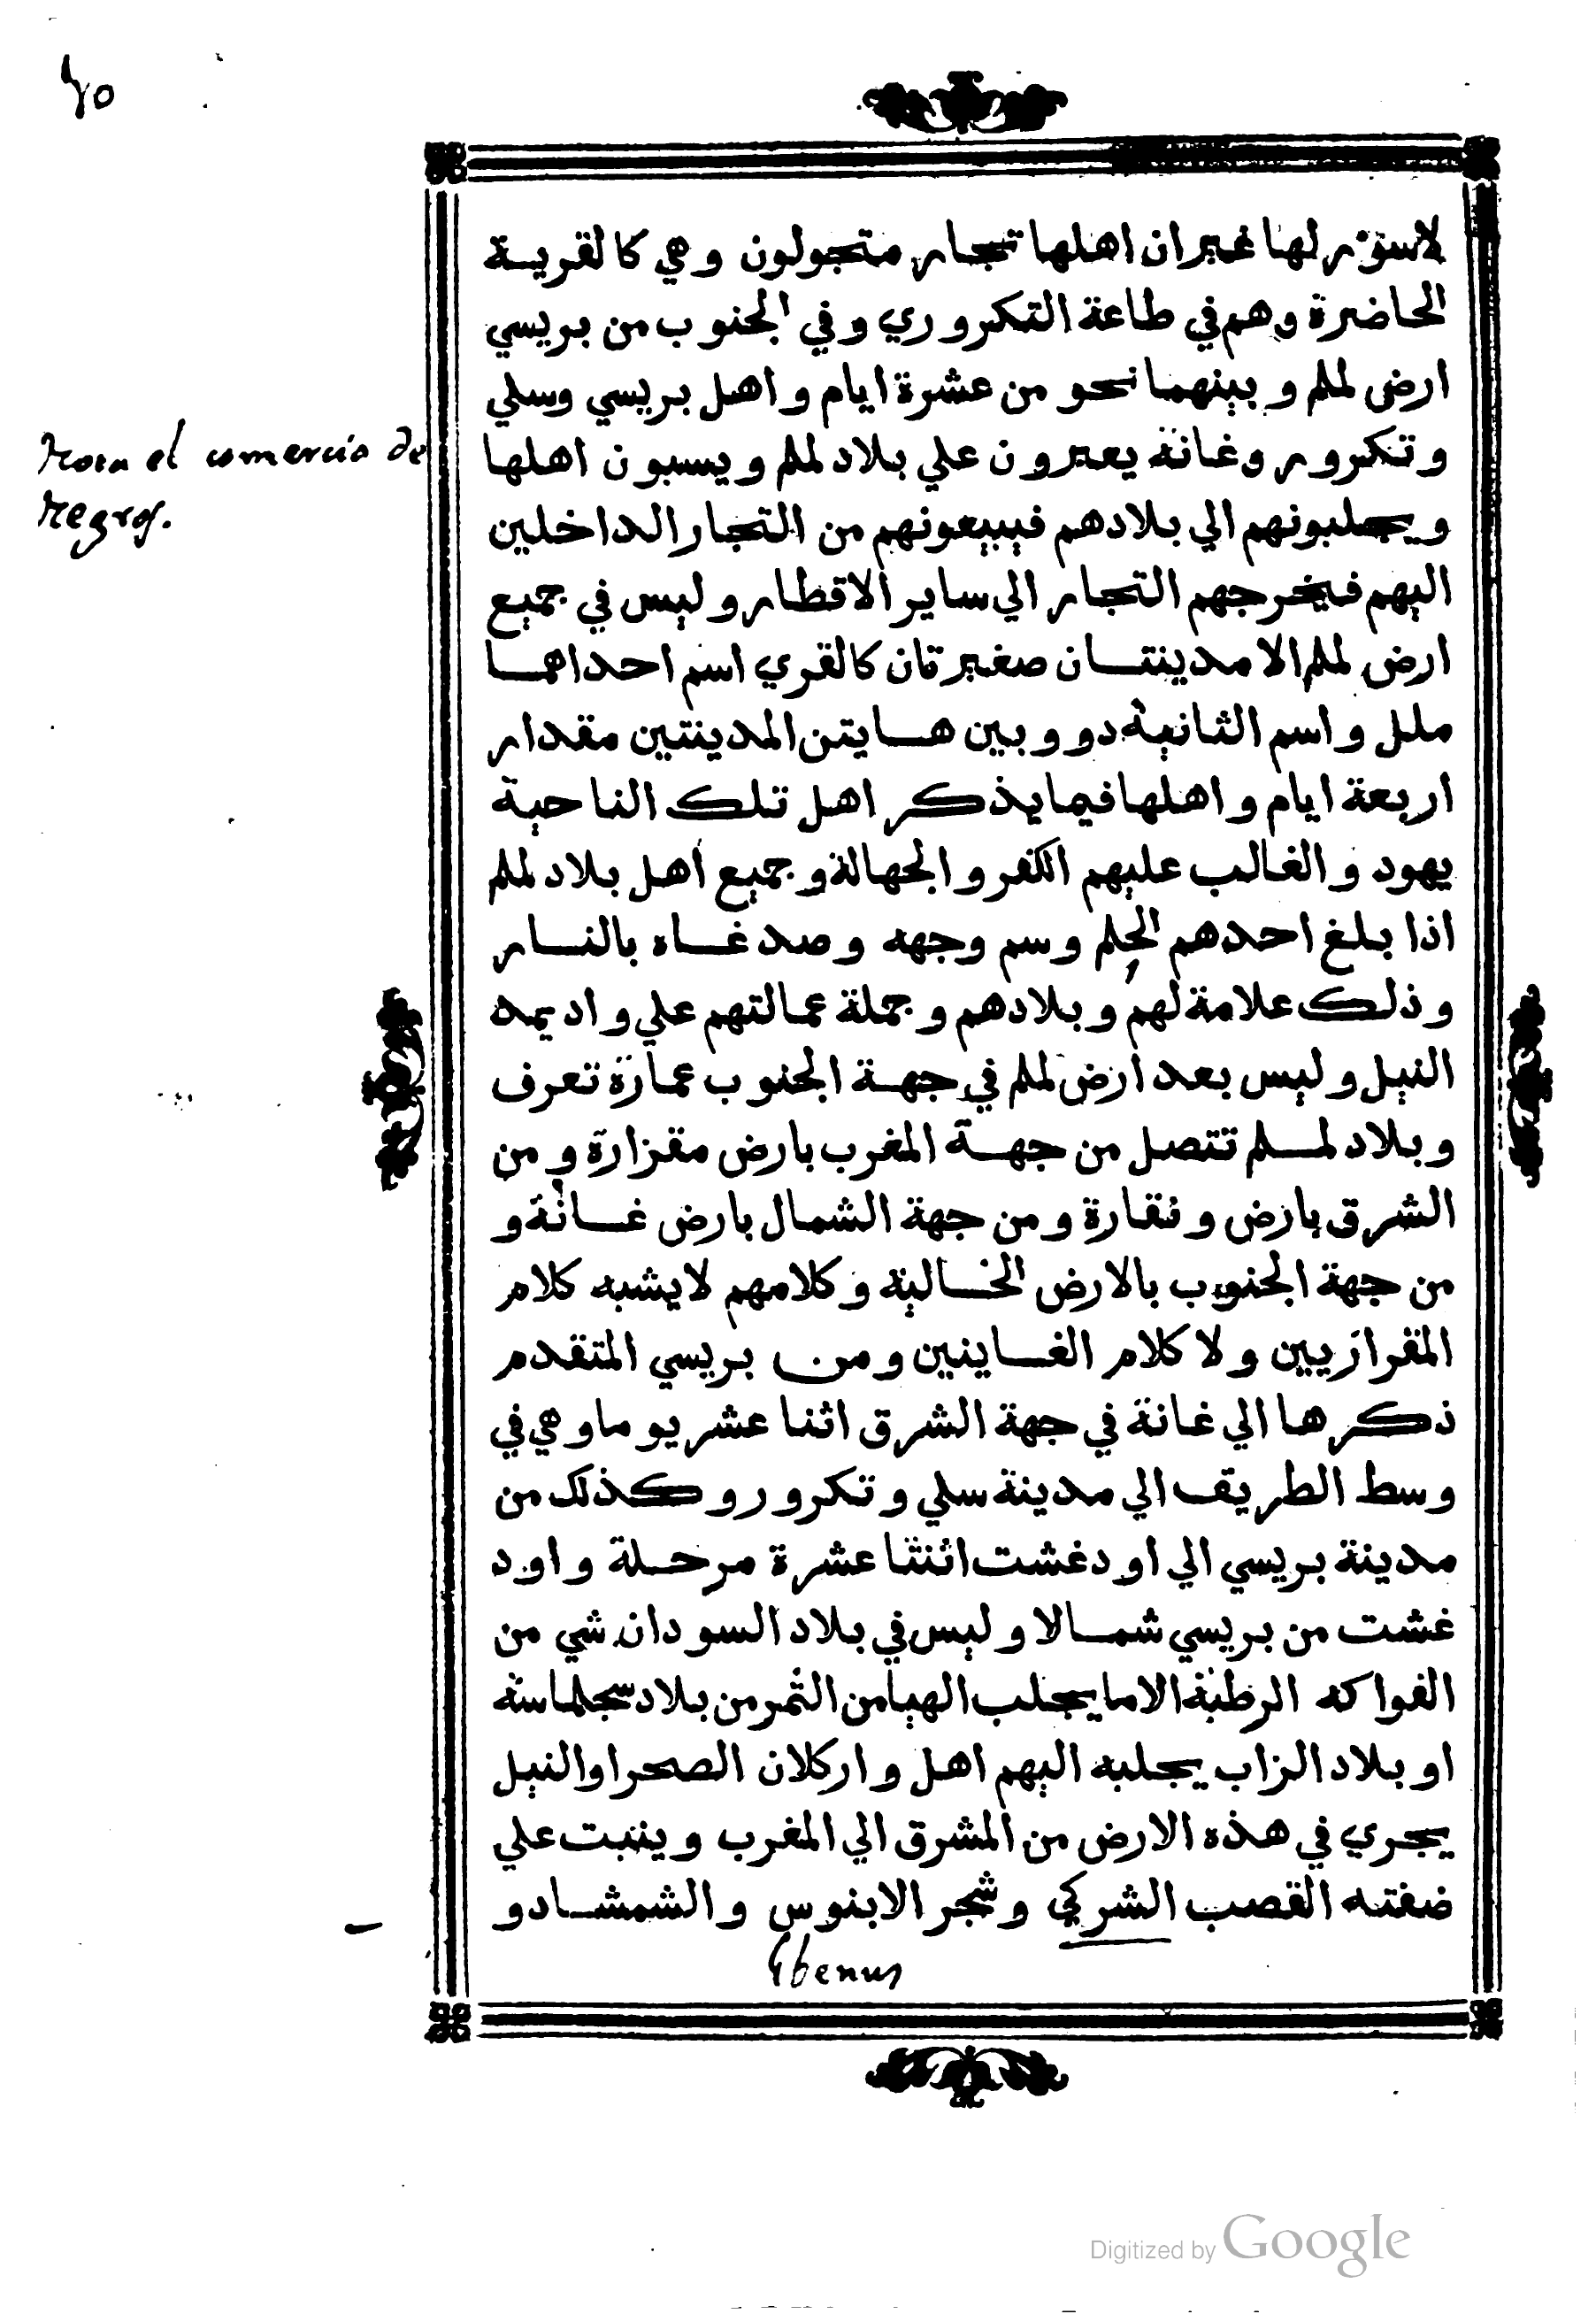 لاسور لها غير ان اهلها تجار متجولون وهي كالقرية
الحاضرة وهم في طاعة التكروري وفي الجنوب من بريسي
ارض لملم وبينهما نحو من عشرة ايام واهل بريسي وسلي
وتكرور وغانة يعبرون علي بلاد لملم ويسبون اهلها
ويجلبونهم الي بلادهم فيبيعونهم من التجار الداخلين
اليهم فيخرجهم التجار الي ساير الاقطار وليس في جميع
ارض لملم الا مدينتان صغيرتان كالقري اسم احداهما
ملل واسم الثانية دو وبين هايتن المدينتين مقدار
اربعة ايام واهلها فيما يذكر اهل تلك الناحية
يهود والغالب عليهم الكفر والجهالة وجميع اهل بلاد لملم
اذا بلغ احدهم الحلم وسم وجهه وصدغاه بالنار
وذلك علامة لهم وبلادهم وجملة عمالتهم علي واد يمد
النيل وليس بعد ارض لملم في جهة الجنوب عمارة تعرف
وبلاد لملم تتصل من جهة المغرب بارض مقزارة ومن
الشرق بارض ونقارة ومن جهة الشمال بارض غانة و
من جهة الجنوب بالارض الخالية وكلامهم لا يشبه كلام
المقرازيين ولا كلام الغاينين ومن بريسي المتقدم
ذكرها الي غانة في جهة الشرق اثنا عشر يوما وهي في
وسط الطريق الي مدينة سلي وتكرور وكذلك من
مدينة بريسي الي اودغشت اثنتا عشرة مرحلة واود
غشت من بريسي شمالا وليس في بلاد السودان شي من
الفواكه الرطبة الا ما يجلب اليها من التمر من بلاد سجلماسة
او بلاد الزاب يجلبه اليهم اهل واركلان الصحرا والنيل
يجري في هذه الارض من المشرق الي المغرب وينبت علي
ضفته القصب الشركي وشجر الابنوس والشمشاد و
Ebenus
Nota el comercio de
Negros.
Digitized by Google